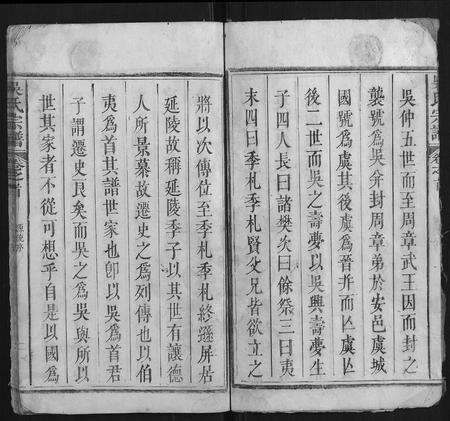 吳仲五世而至周章武王因而封之
襲號爲吳分封周章弟於安邑虞城
國號爲虞其後虞爲晉并而亾虞亾
後二世而吳之壽夢以吳興壽夢生
子四人長曰諸樊次曰餘祭三曰夷
末四曰季札季札賢父兄皆欲立之
吳氏宗譜
卷之首
將以次傳位至季札季札終遜屏居
延陵故稱延陵季子以其世有讓德
人所景慕故遷史之爲列傳也以伯
夷爲首其譜世家也卽以吳爲首君
子謂遷史良矣而吳之爲吳與所以
世其家者不從可想乎自是以國爲